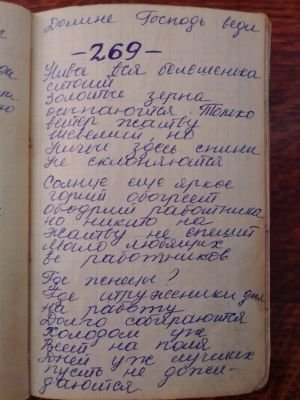 Долине Господь веди
-269-
Нива вся белешенька
стоит
Золотые зерна
осыпаются. Только
ветер жатву
шевелит, но
Ничьи здесь спины
Не склоняются.
Солнце еще яркое
горит обогреет
ободрит работника
но никто на
жатву не спешит
Мало любящих
работников
Где женецы?
Где труженики дня
На работу
Долго собираются
Холодом уж
Веет на поля
Дней уж лучших
пусть не дожи-
даются.